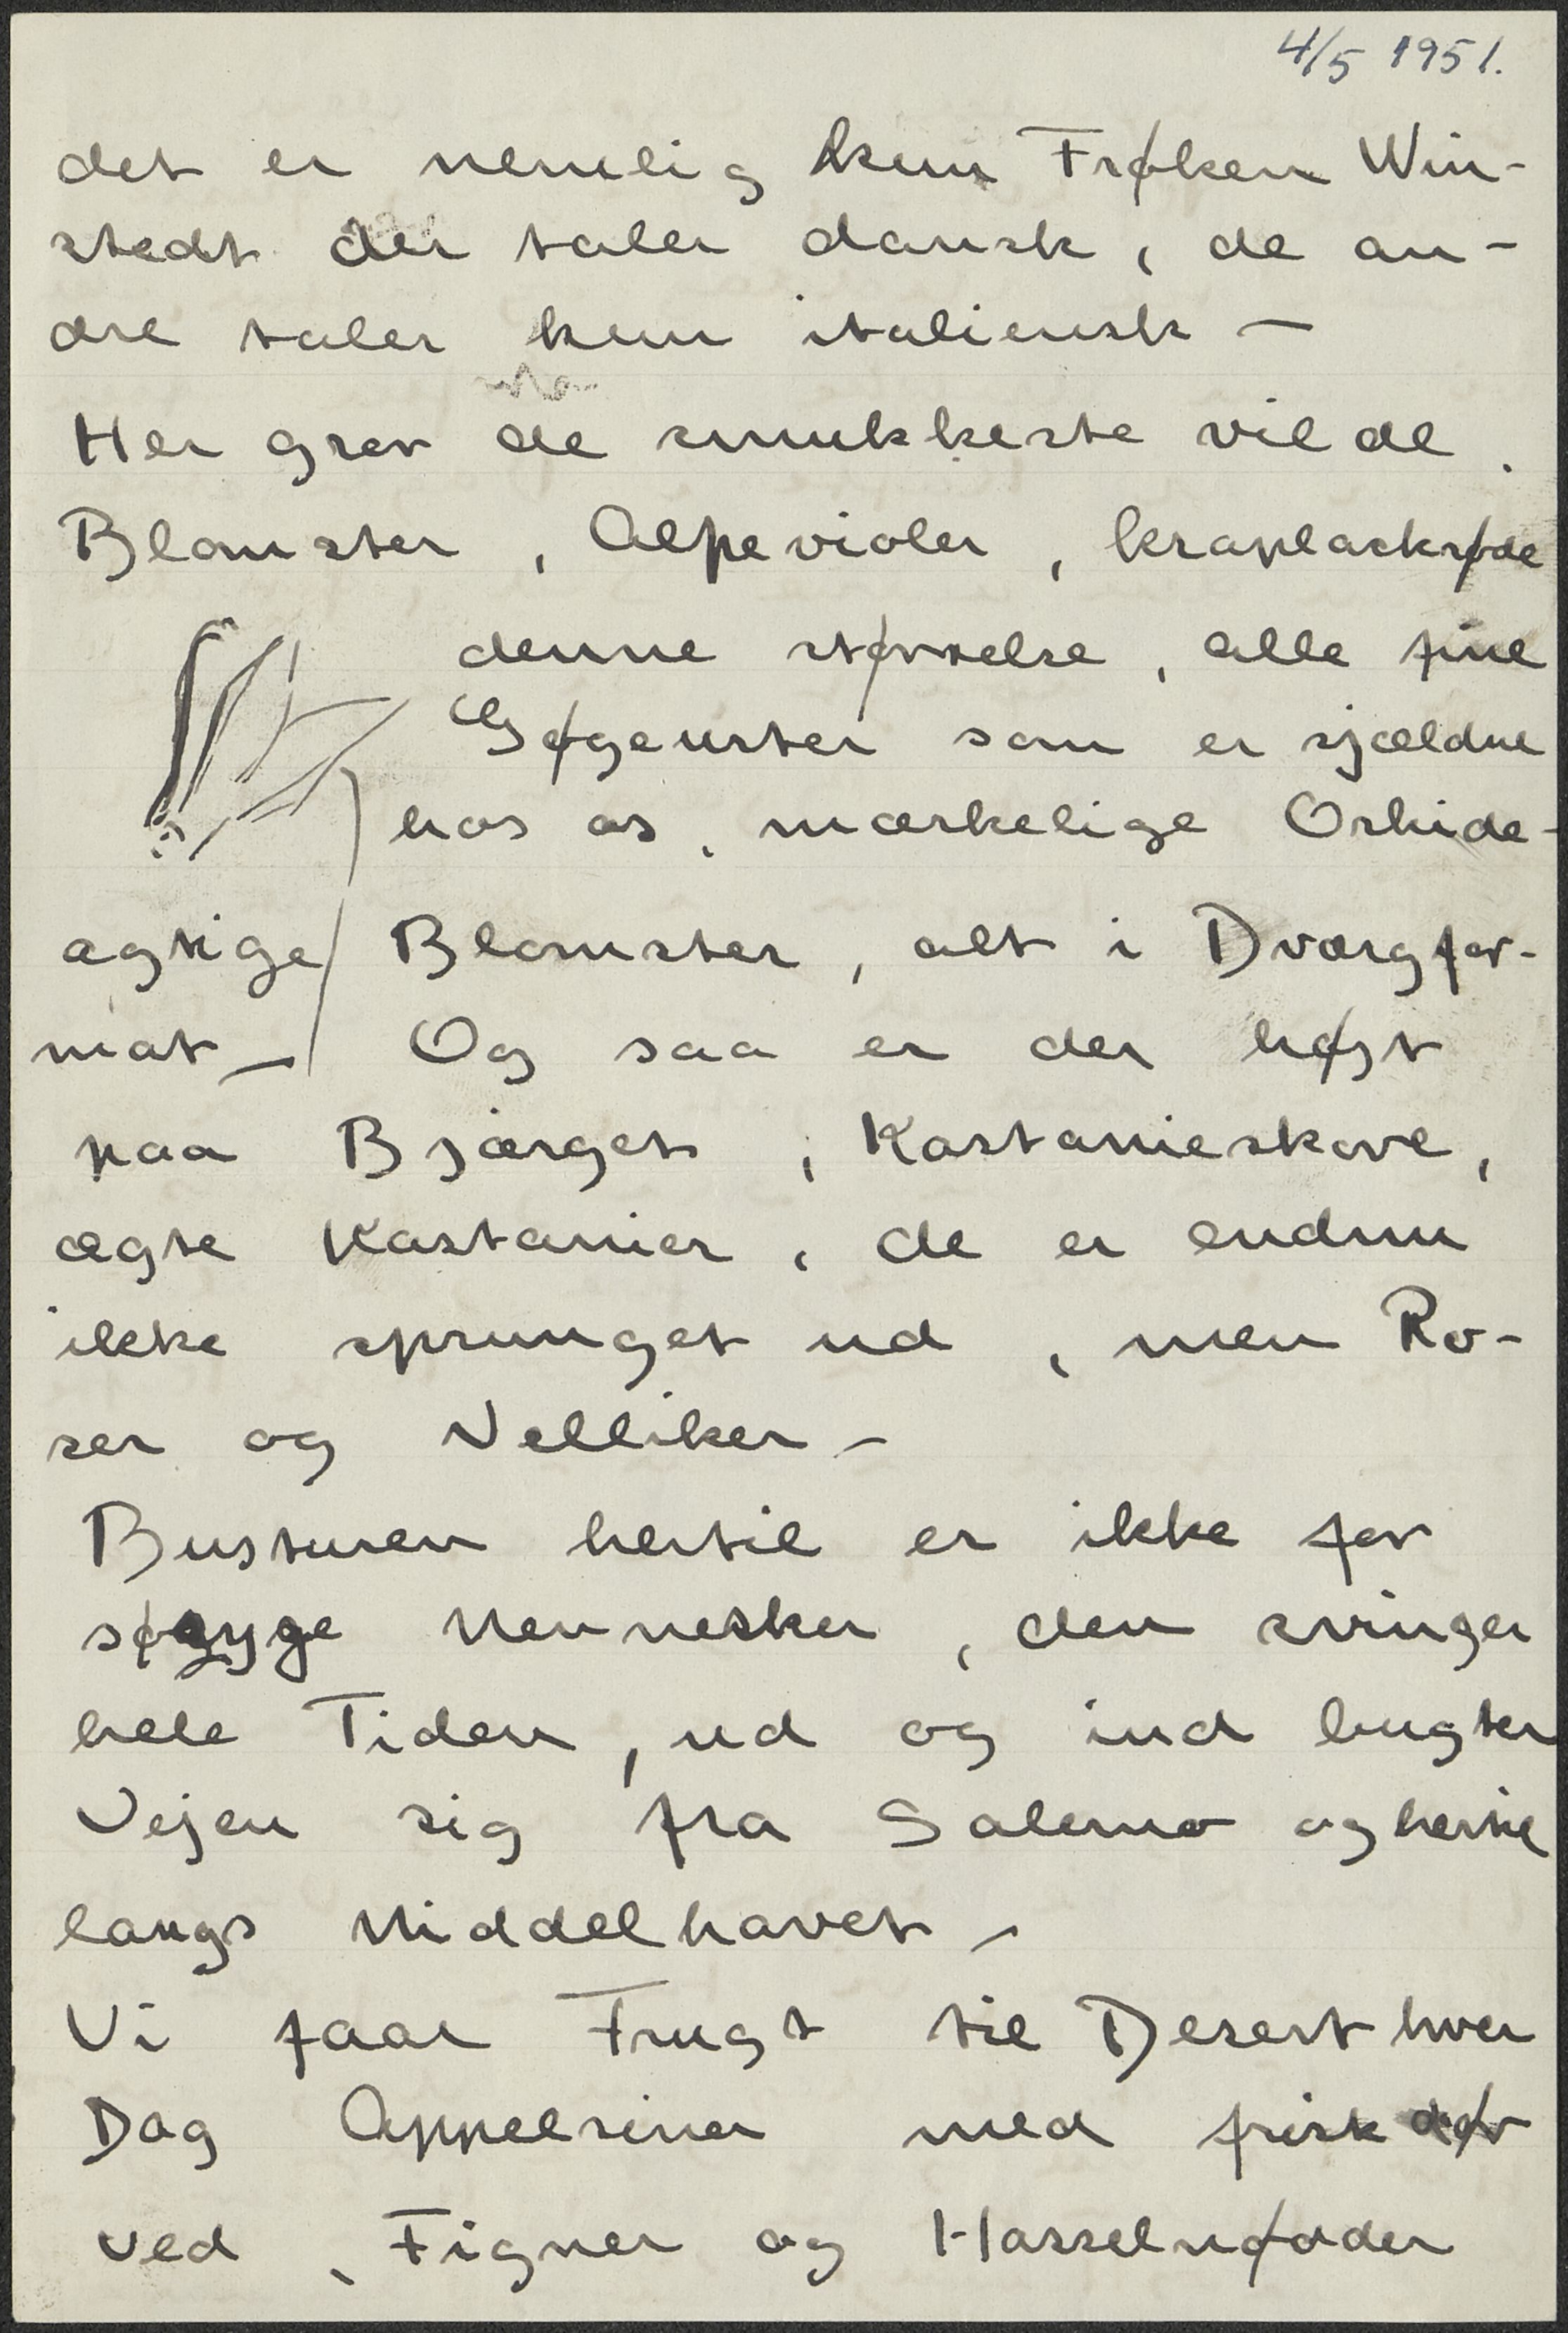 4/5 1951.
det er nemlig kun Frøken Win-
stedt der taler dansk, de an-
dre taler kun italiensk —
Her gror de smukkeste vilde
Blomster, Alpevioler, kraplackrøde
denne størrelse, alle fine
Gøgeurter som er sjældne
hos os, mærkelige Orkide-
agtige Blomster, alt i Dværgfor-
mat — Og saa er der højt
paa Bjærget, Kastanieskove,
ægte Kastanier, de er endnu
ikke sprunget ud, men Ro-
ser og Nelliker —
Busturen hertil er ikke for
søgyge Mennesker, den svinger
hele Tiden, ud og ind bugter
Vejen sig fra Salerno og hertil
langs Middelhavet —
Vi faar Frugt til Desert hver
Dag Appelsiner med frisk
ved, Figner og Hasselnødder